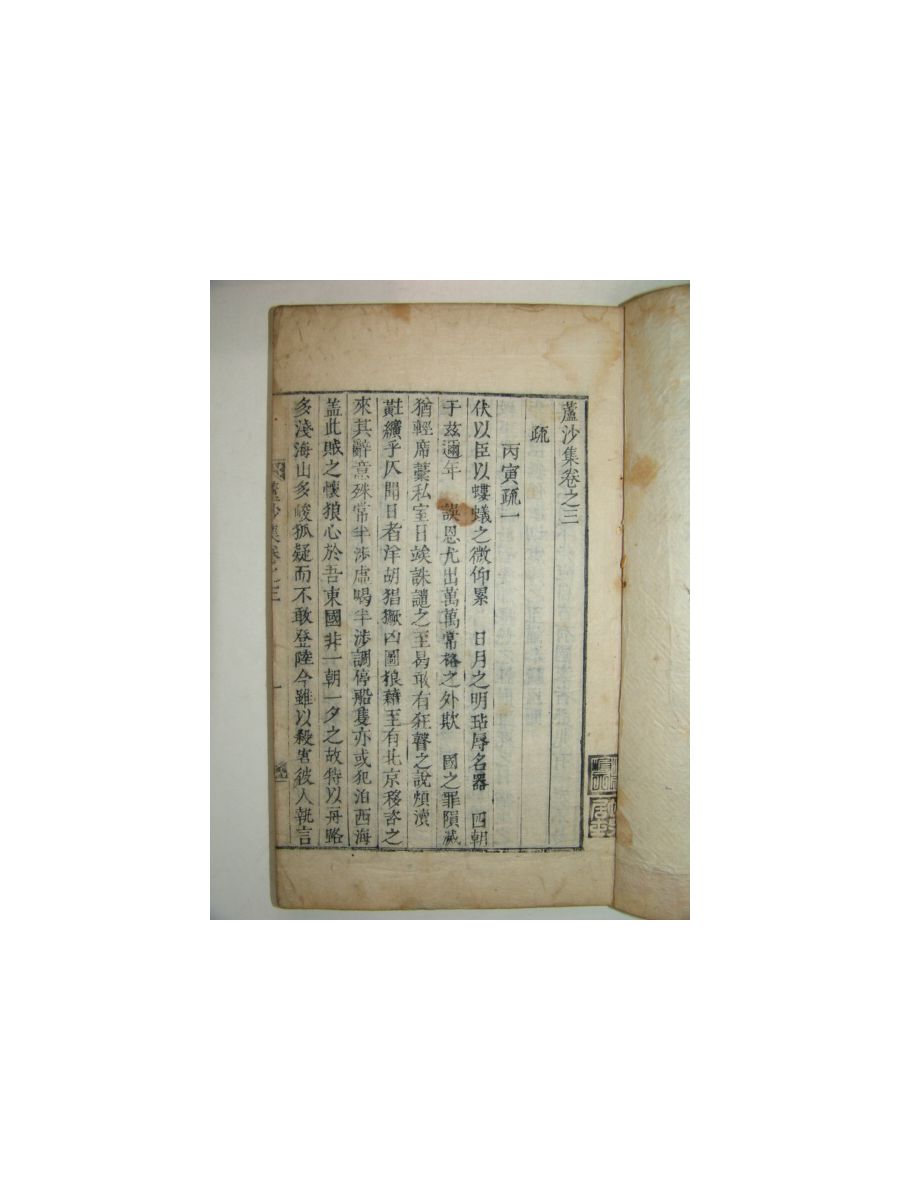 蘆沙集卷之三
疏
丙寅疏一
伏以臣以螻蟻之微仰累 日月之明玷辱名器 四朝
于玆邇年 誤恩尤出萬萬常格之外欺 國之罪隕滅
猶輕席藁私室日竢誅譴之至曷敢有狂瞽之說煩瀆
黈纊乎仄聞日者洋胡猖獗凶圖狼藉至有北京移咨之
來其辭意殊常半涉虛喝半涉調停船隻亦或犯泊西海
盖此賊之懷狼心於吾東國非一朝一夕之故特以舟路
多淺海山多峻狐疑而不敢登陸今雖以殺害彼人執言
蘆沙集卷之三 一